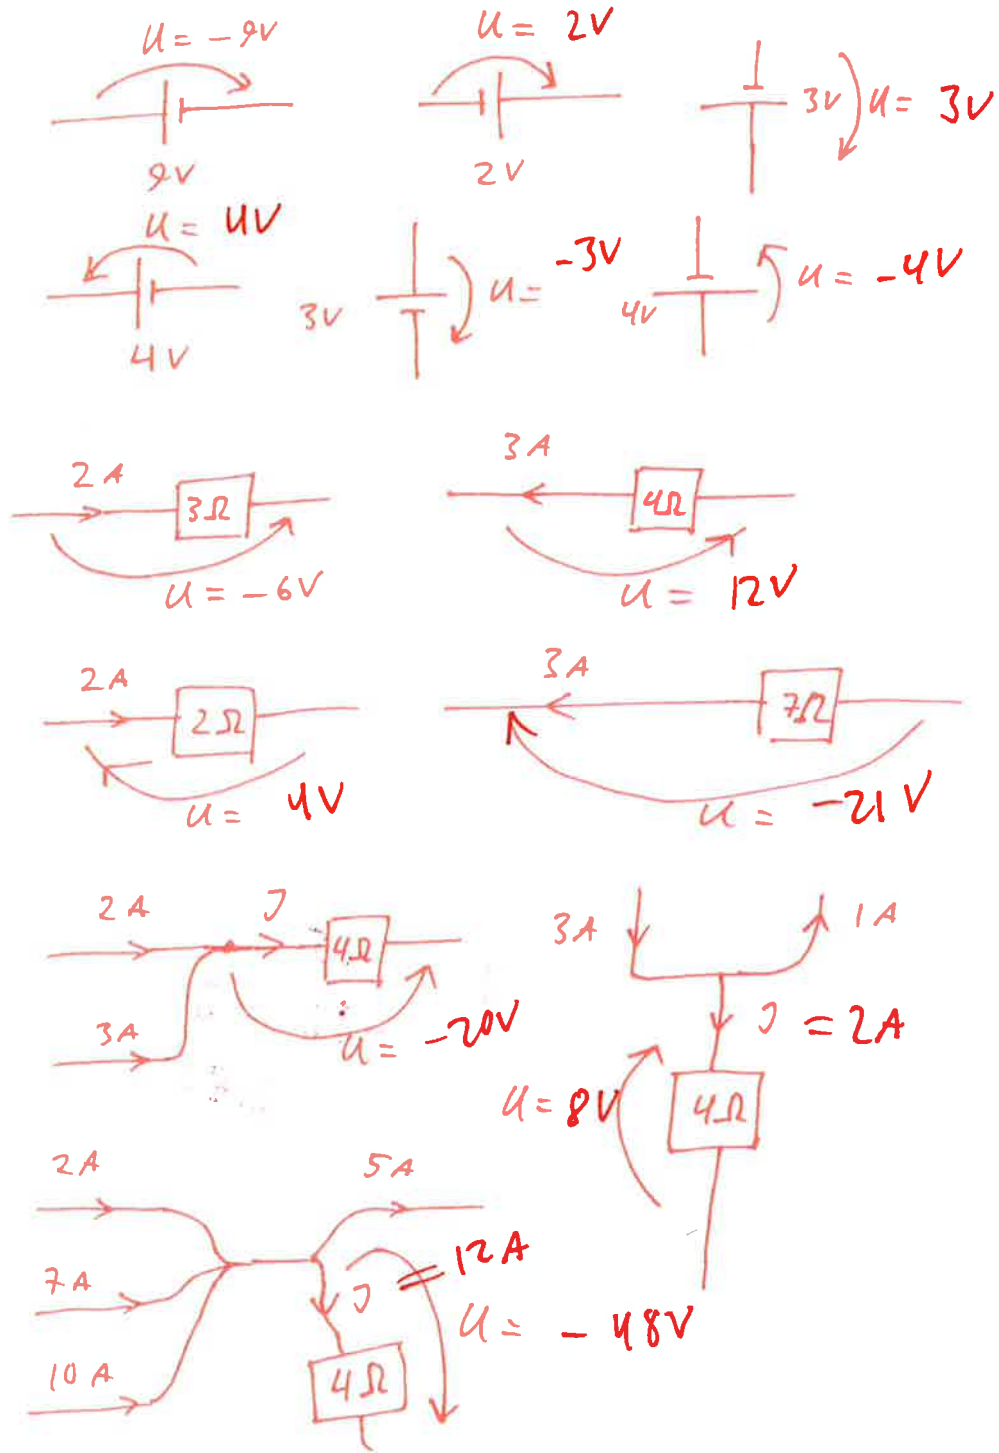 U = -9V
U = 2V
9V
2V
3V
U = 3V
U = 4V
4V
3V
U = -3V
4V
U = -4V
2A
3Ω
U = -6V
3A
4Ω
U = 12V
2A
2Ω
U = 4V
3A
7Ω
U = -21V
2A
J
4Ω
3A
U = -20V
3A
1A
J = 2A
U = 8V
4Ω
2A
5A
7A
J = 12A
U = -48V
10A
4Ω